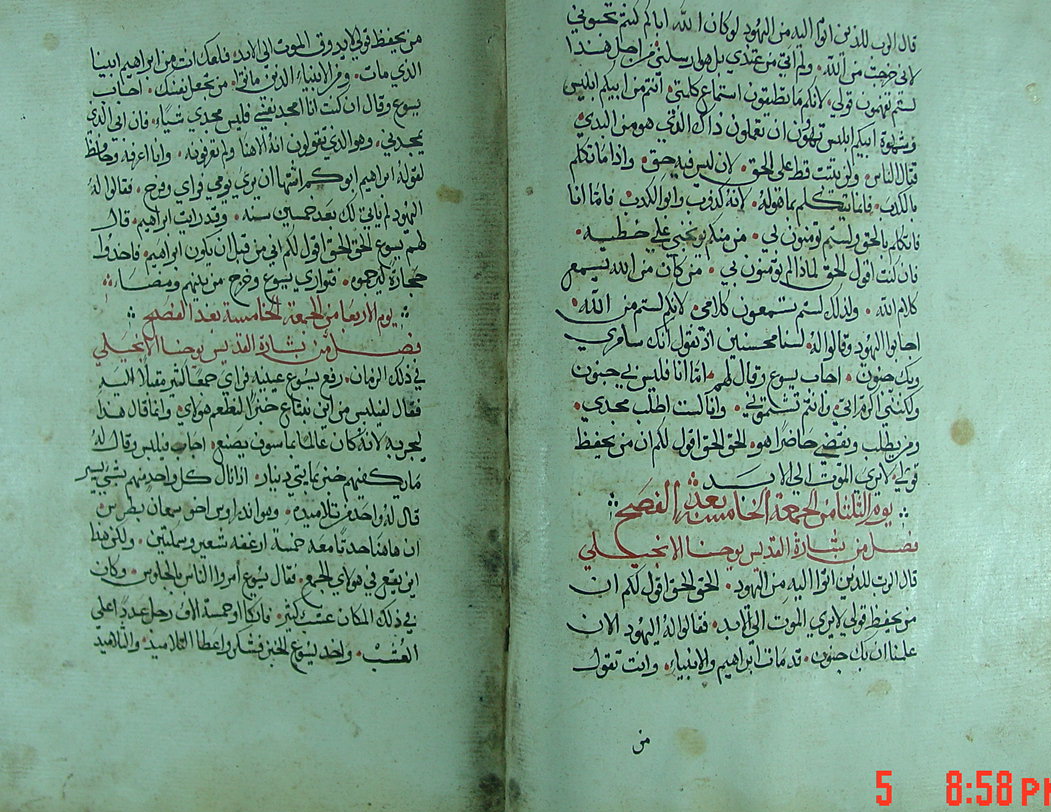 قال الرب للذين اتوا اليه من اليهود لو كان الله اباكم كنتم تحبوني
لاني خرجت من الله. ولم اتي من عندي بل هو ارسلني من اجل هذا
لستم تفهمون قولي. لانكم ما تطيقون استماع كلمتي. انتم من ابيكم ابليس
وشهوة ابيكم ابليس تهوون ان تعملون ذاك الذي هو من البدي
قتال الناس. ولم يثبت قط على الحق. لان ليس فيه حق. واذا ما تكلم
بالكذب. فانما يتكلم بما هو له. لانه كدوب وابو الكدب. فاما انا
فاتكلم بالحق ولستم تومنون بي. من منكم يوبخني على خطيه.
فان كنت اقول الحق لماذا لم تومنون بي. من كان من الله يسمع
كلام الله. ولذلك لستم تسمعون كلامي. لانكم لستم من الله.
اجابوا اليهود وقالوا له. لسنا محسنين اذ نقول انك سامري
وبك جنون. اجاب يسوع وقال لهم. اما انا فليس بي جنون
ولكنني اكرم ابي. وانتم تشتموني. وانا لست اطلب مجدي.
ومن يطلب ويقضي حاضرا هو. الحق الحق اقول لكم ان من يحفظ
قولي. لا يرى الموت الى الابد
يوم الثلثا من الجمعة الخامسة بعد الفصح
فصل من بشارة القديس يوحنا الانجيلي
قال الرب للذين اتوا اليه من اليهود. الحق الحق اقول لكم ان
من يحفظ قولي لا يرى الموت الى الابد. فقالوا له اليهود الان
علمنا ان بك جنون. قد مات ابراهيم والانبياء. وانت تقول
من
من يحفظ قولي لا يدوق الموت الى الابد. فلعلك انت من ابراهيم ابينا
الذي مات. ومن الانبياء الذين ماتوا. من تجعل نفسك. اجاب
يسوع وقال ان كنت انا امجد نفسي فليس مجدي شياء. فان ابي الذي
يمجدني. وهو الذي تقولون انه الاهنا ولم تعرفونه. وانا اعرفه وحافظ
لقوله ابراهيم ابوكم اشتها ان يرى يومي فراي وفرح. فقالوا له
اليهود لم ياتي لك بعد خمسين سنه. وقد رايت ابراهيم. قال
لهم يسوع الحق الحق اقول لكم اني من قبل ان يكون ابراهيم. فاخدوا
حجارة ليرجموه. فتوارى يسوع وخرج من بينهم ومضا.
يوم الاربعا من الجمعة الخامسة بعد الفصح
فصل من بشارة القديس يوحنا الانجيلي
في ذلك الزمان. رفع يسوع عينيه فراي جمعا كثير مقبلا اليه
فقال لفيلبس من اين نبتاع خبزا لنطعم هولاي. وانما قال هذا
يجربه لانه كان عالما بما سوف يصنع. اجاب فيلبس وقال له
ما يكفيهم خبز بمايتي دينار. اذا نال كل واحد منهم شي يسير
قال له واحد من تلاميده. وهو اندراوس اخو سمعان بطرس
ان هاهنا حدثا معه خمسة ارغفه شعير وسمكتين. ولكن هدا
اين يقع في هولاي الجمع. فقال يسوع امروا الناس بالجلوس. وكان
في ذلك المكان عشب كتير. فاتكوا خمسة الاف رجل عددا على
العشب. واخد يسوع الخبز فشكر واعطا التلاميد. والتلاميد
5 8:58